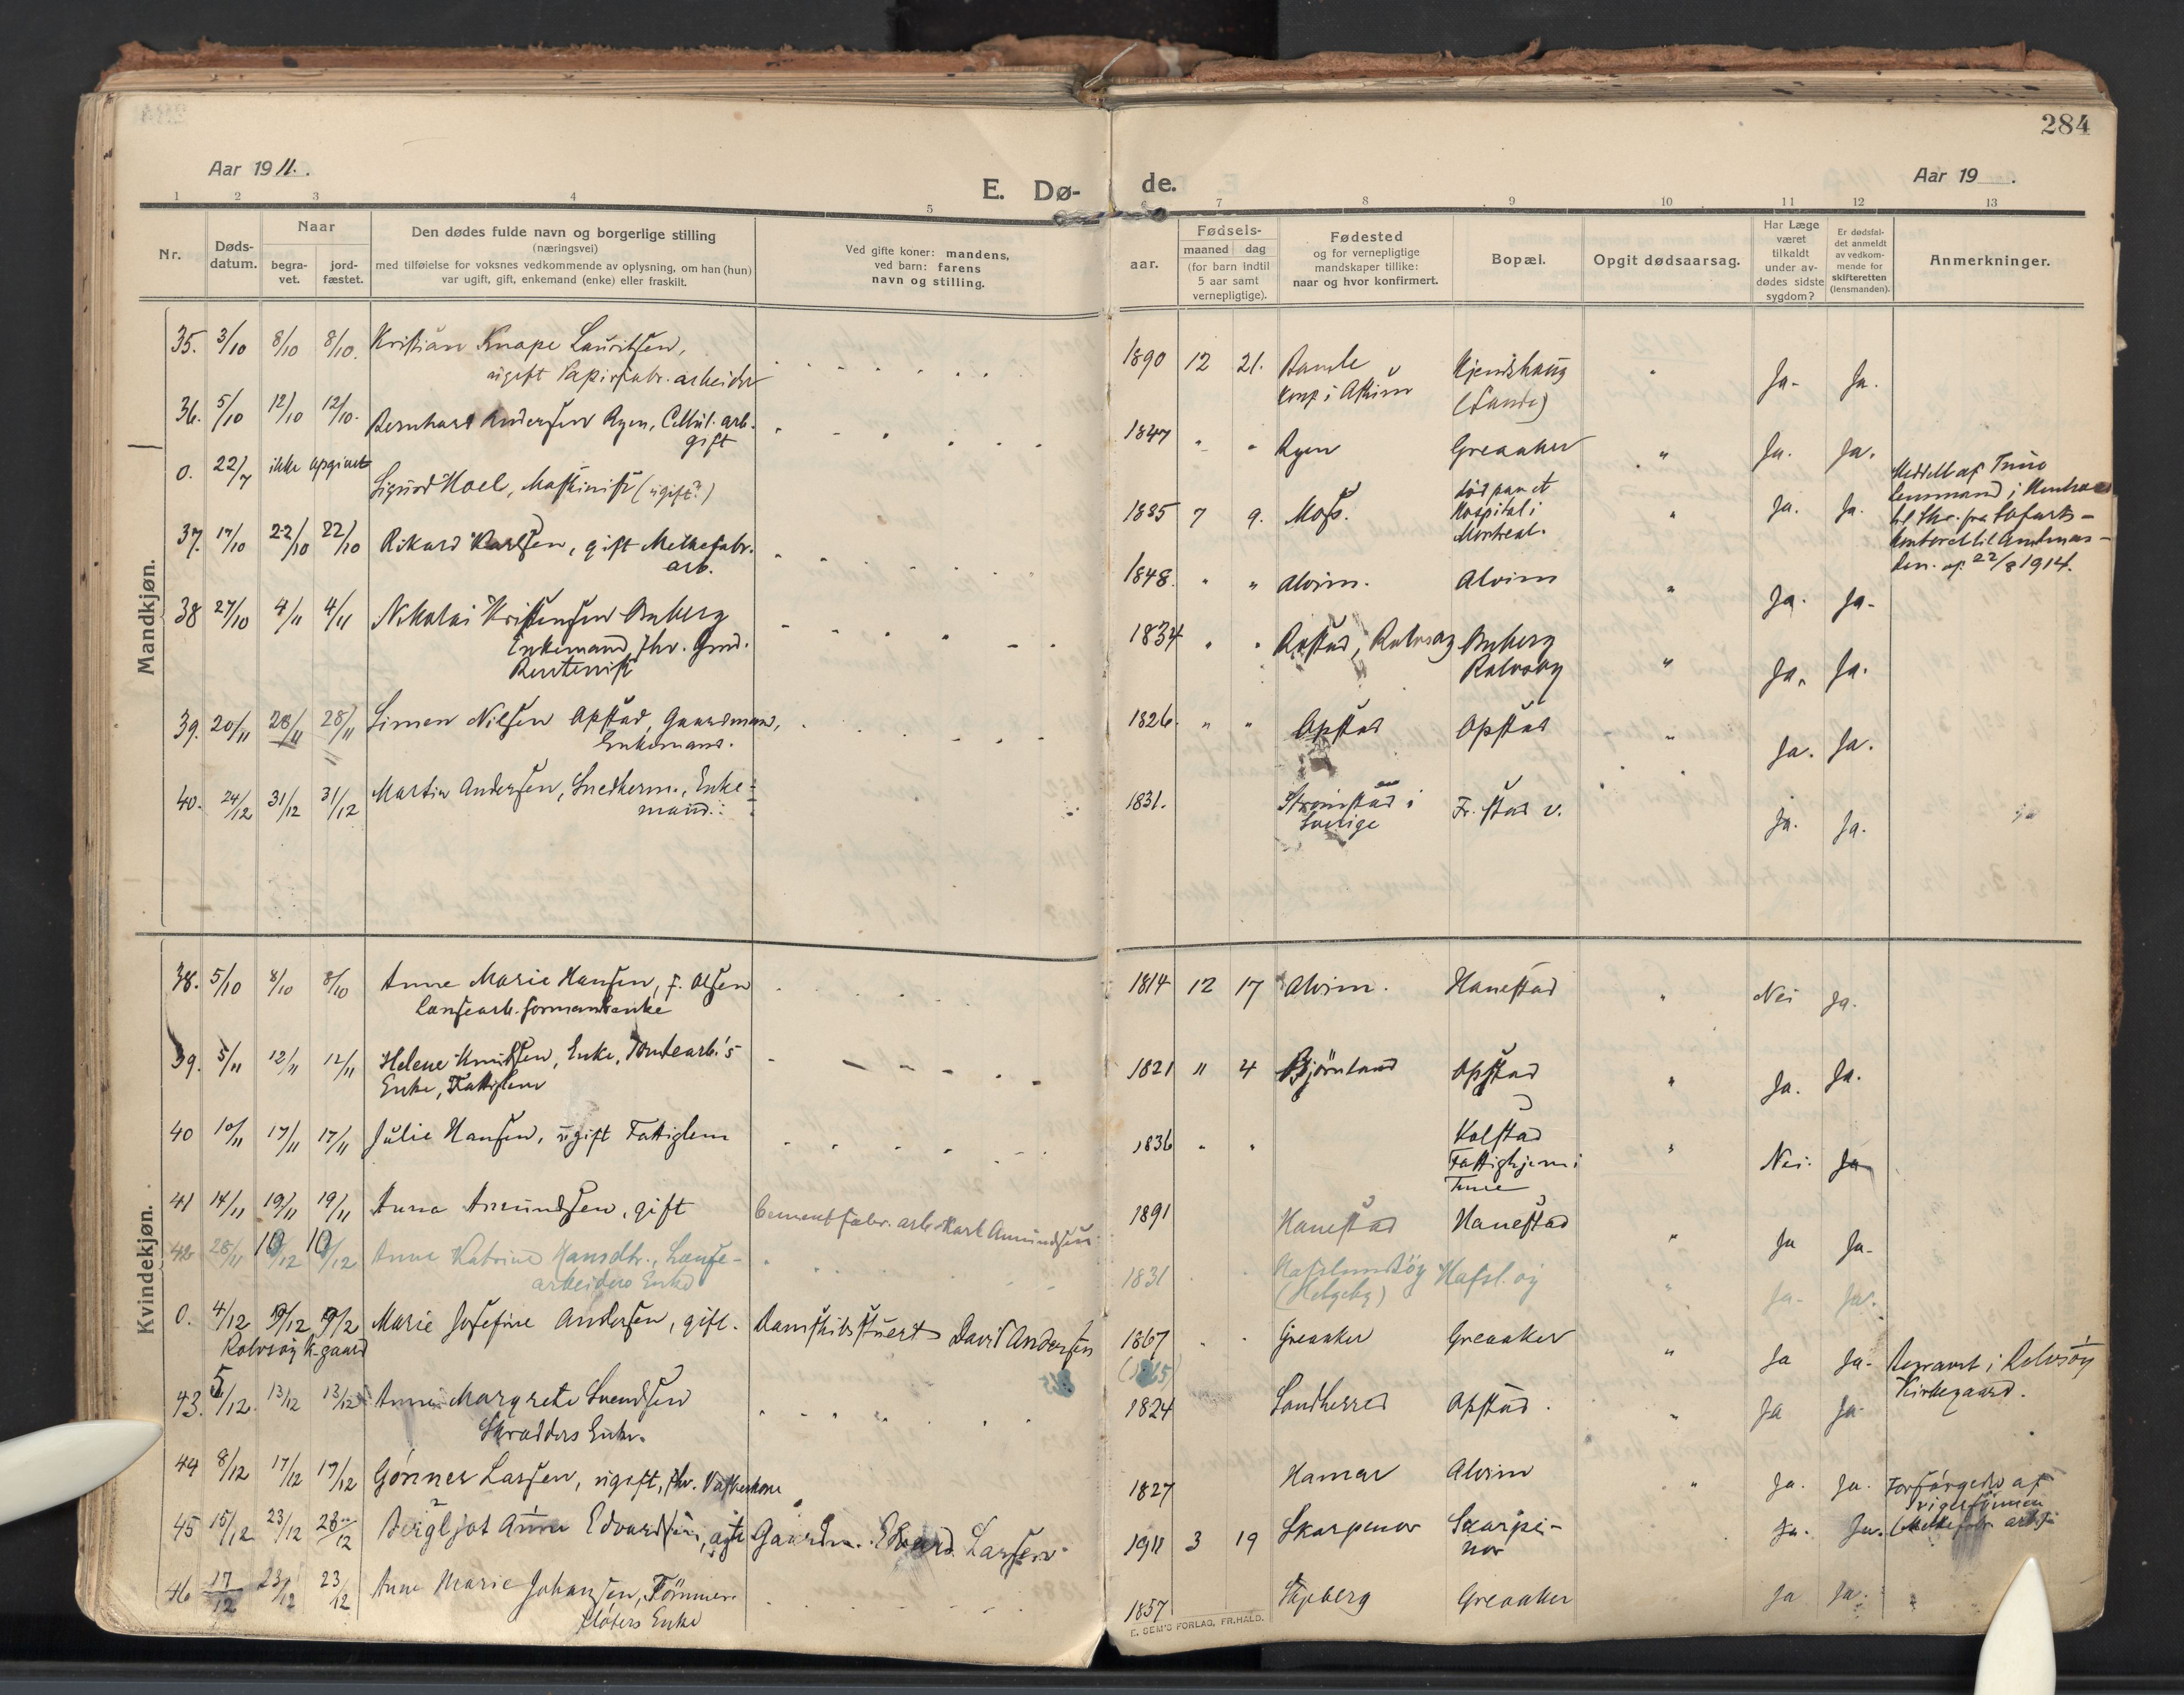 284
Aar 19 11.
E. Dø-
de.
Aar 19 .
1 2 3 4 5 6 7 8 9 10 11 12 13
Nr.
Døds-
datum.
Naar
begra-
vet.
jord-
fæstet.
Den dødes fulde navn og borgerlige stilling
(næringsvei)
med tilføielse for voksnes vedkommende av oplysning, om han (hun)
var ugift, gift, enkemand (enke) eller fraskilt.
Ved gifte koner: mandens,
ved barn: farens
navn og stilling.
aar.
Fødsels-
maaned dag
(for barn indtil
5 aar samt
vernepligtige).
Fødested
og for vernepligtige
mandskaper tillike:
naar og hvor konfirmert.
Bopæl.
Opgit dødsaarsag.
Har Læge
været
tilkaldt
under av-
dødes sidste
sygdom?
Er dødsfal-
det anmeldt
av vedkom-
mende for
skifteretten
(lensmanden).
Anmerkninger.
Mandkjøn.
35. 3/10 8/10 8/10. Kristian Knape Lauritsen, 1890 12 21. Bamle Kjendshaug " Ja- Ja.
ugift Papirfabr. arbeider konf i Askim (Sande)
36. 5/10 12/10 12/10. Bernhard Andersen Ryen, Cellul. arb. 1847 " " Ryen Greaaker " Ja. Ja.
gift
0. 22/7 ikke opgivet Sigurd Hoel, Maskinist (ugift?) 1885 7 9. Moss. død paa et " Ja. Ja. Meddelt af Tune
Hospital i
Montreal.
Lensmand i
kontoret til Amtman-
den. af 22/8 1914.
37. 17/10 22/10 22/10 Rikard Karlsen, gift Melkefabr. 1848. " " Alvim. Alvim " Ja. Ja-
arb.
38 27/10 4/11 4/11 Nikolai Kristensen Buberg 1834 " " Rostad, Rolvsøy Buberg " Ja. Ja.
Enkemand, fhv. Grd. Rolvsøy
Rentenist
39. 20/11 28/11 28/11 Simen Nilsen Opstad, Gaardmand, 1826. " " Opstad Opstad " Ja. Ja.
Enkemand.
40. 24/12 31/12 31/12 Martin Andersen, Snedkerm., Enke- 1831. Strømstad i Fr.stad v. Ja. Ja.
mand. Sverige
Kvindekjøn.
38. 5/10 8/10 8/10 Anne Marie Hansen, f. Olsen 1814 12 17 Alvim. Hanestad " Nei Ja.
Lænsearb. formandsenke
39. 5/11 12/11 12/11 Helene Knutsen, Enke, Tomtearb.'s 1821 11 4 Bjørnland Opstad " Ja. Ja.
Enke, Fattiglem
40 10/11 17/11 17/11 Julie Hansen, ugift Fattiglem 1836 " " Kolstad " Nei. Ja
Fattighjem i
Tune
41 14/11 19/11 19/11 Anna Amundsen, gift Cementfabr. arb. Karl Amundsen. 1891 Hanestad Hanestad " Ja Ja-
42 28/11 10/12 10/12 Anne Katrine Hansdtr., Lænse- 1831 Hafslundsøy Hafsl.øy " Ja- Ja.
arbeiders Enke (Helgeby)
0. 4/12 9/12 9/12 Marie Josefine Andersen, gift. Damskibsstuert David Andersen 1867 " " Greaaker Greaaker " Ja Ja- Begravet i Rolvsøy
Rolvsøy k.gaard (1865) Kirkegaard.
43. 5/12. 13/12 13/12 Anne Margrete Svendsen 1824 Sandherred Opstad. " Ja Ja-
Skrædders Enke.
44 8/12 17/12 17/12 Gunner Larsen, ugift, fhv. Vaskerkone 1827 Hamar Alvim " Ja. Ja. Forsørgedes af
45 15/12 23/12 23/12 Bergljot Anna Edvardsen, ægte Gaardm. Edvard Larsen. 1911 3 19 Skarpenor Skarpe- Ja. Ja. (Melkefabr. arb.)
nor
46 17/12 23/12 23/12 Anne Marie Johansen, Tømmer- 1857 Skjeberg Greaaker Ja Ja.
fløters Enke
E. SEM'S FORLAG, FR.HALD.